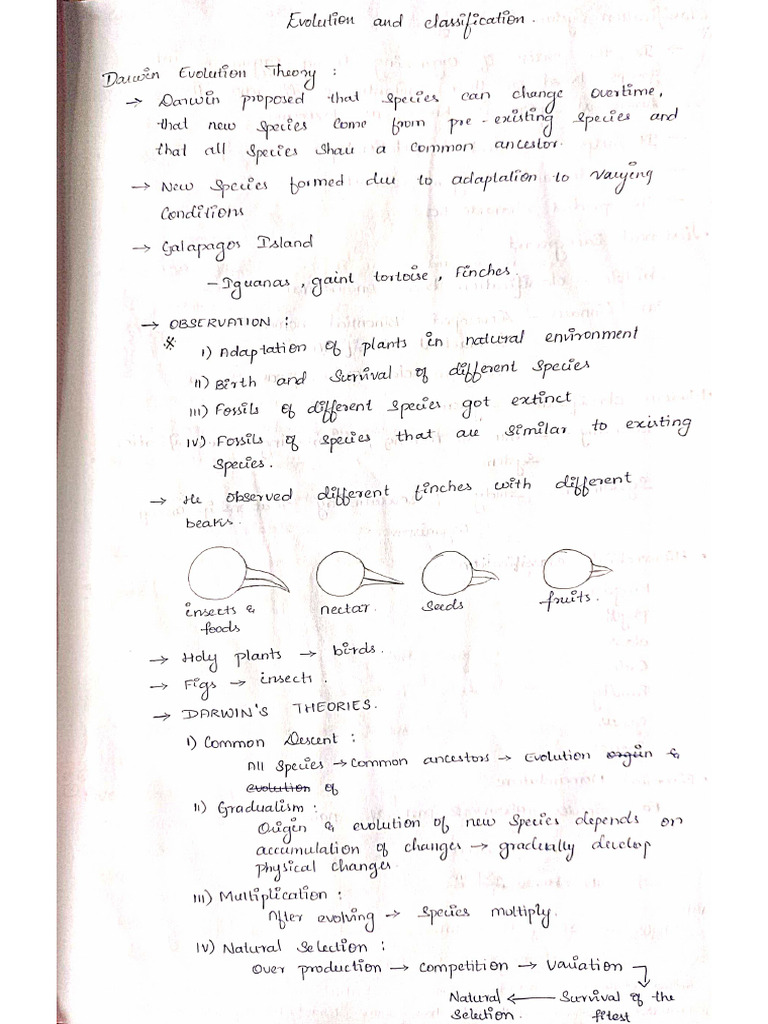 Evolution and classification.
Darwin Evolution Theory :
→ Darwin proposed that species can change overtime,
that new species come from pre-existing species and
that all species share a common ancestor.
→ New species formed due to adaptation to varying
conditions
→ Galapagos Island
- Iguanas, gaint tortoise, Finches.
→ OBSERVATION :
* i) Adaptation of plants in natural environment
ii) Birth and survival of different species
iii) Fossils of different species got extinct
iv) Fossils of species that are similar to existing
species.
→ He observed different finches with different
beaks.
insects & nectar. seeds fruits.
foods
→ Holy plants → birds.
→ Figs → insects.
→ DARWIN'S THEORIES.
i) Common Descent :
All species → common ancestors → Evolution origin &
evolution of
ii) Gradualism :
Origin & evolution of new species depends on
accumulation of changes → gradually develop
physical changes.
iii) Multiplication :
After evolving → species multiply.
iv) Natural Selection :
Over production → competition → variation
Natural ← Survival of the
selection. fitest